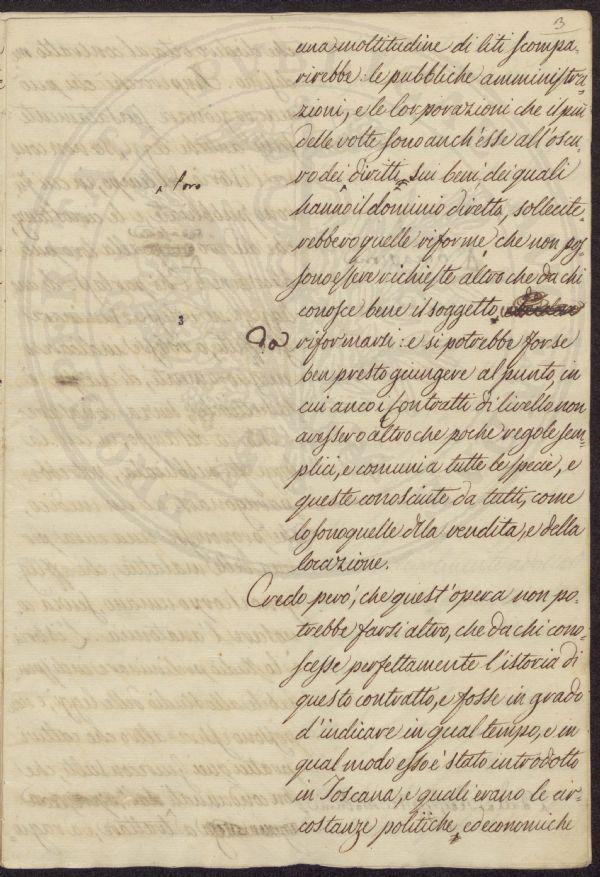 3
una moltitudine di liti scompa-
rirebbe: le pubbliche amministra-
zioni, e le Corporazioni che il più
delle volte sono anch'esse all'oscu-
ro dei diritti, sui beni, dei quali
^ loro
hanno il dominio diretto, sollecite-
rebbero quelle riforme, che non pos-
sono essere richieste altro che da chi
conosce bene il soggetto
3
da riformarsi: e si potrebbe forse
ben presto giungere al punto, in
cui anco i Contratti di livello non
avessero altro che poche regole sem-
plici, e comuni a tutte le specie, e
queste conosciute da tutti, come
lo sono quelle della vendita, e della
locazione.
Credo però, che quest'opera non po-
trebbe farsi altro, che da chi cono-
scesse perfettamente l'istoria di
questo contratto, e fosse in grado
d'indicare in qual tempo, e in
qual modo esso è stato introdotto
in Toscana, e quali erano le cir-
costanze politiche, ed economiche